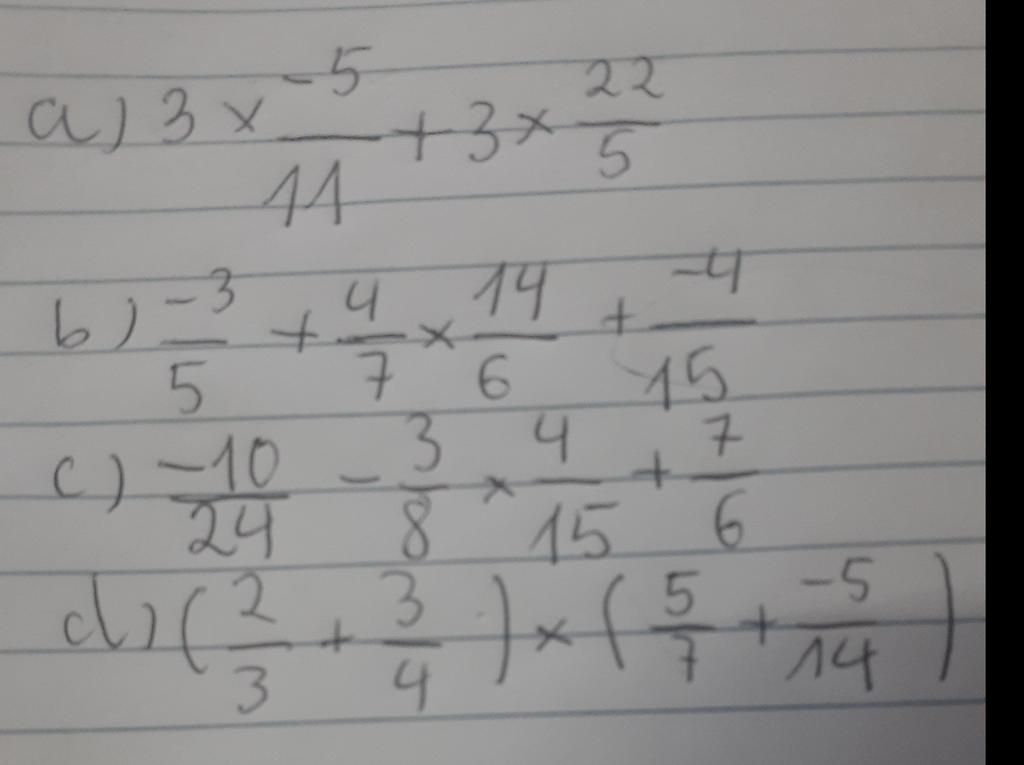 a) 3 × -5/11 + 3 × 22/5
b) -3/5 + 4/7 × 14/6 + -4/15
c) -10/24 - 3/8 × 4/15 + 7/6
d) (2/3 + 3/4) × (5/7 + -5/14)